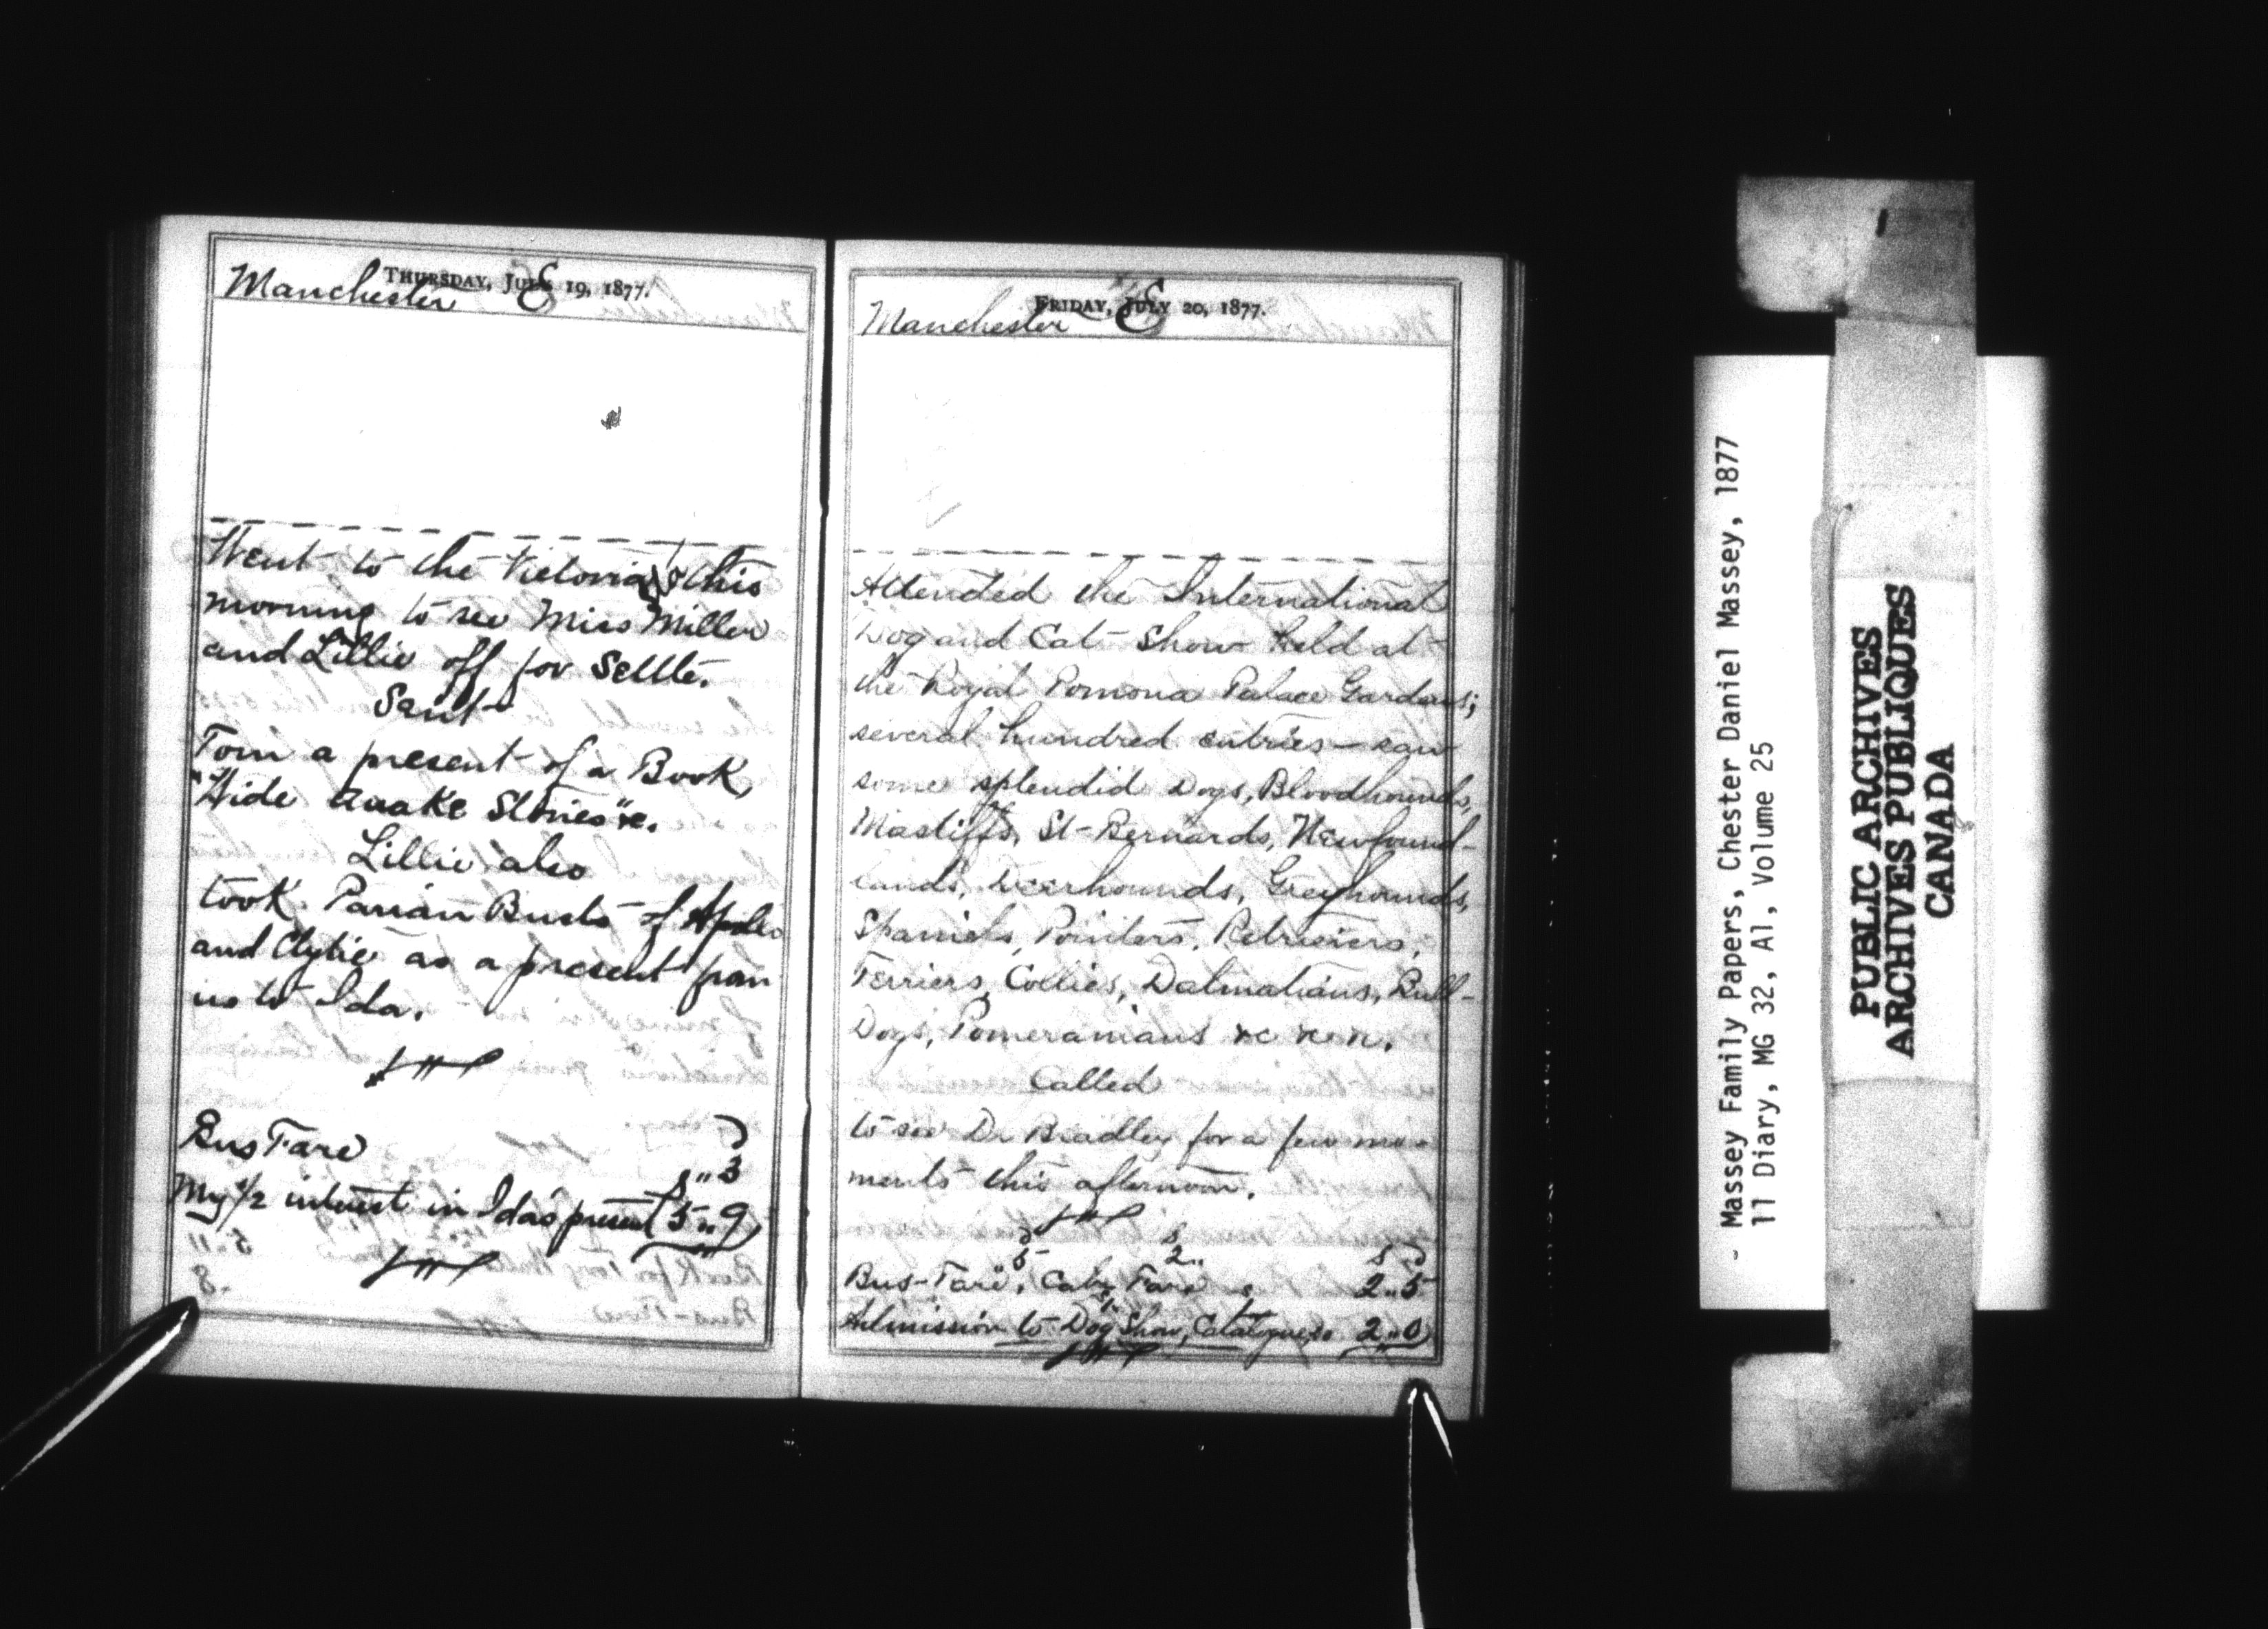 THURSDAY, JULY 19, 1877.
Manchester E
Went to the Victoria this
morning to see Miss Miller
and Lillie off for Settle.
Sent
Tom a present of a Book,
"Wide Awake Stories" &c.
Lillie also
took Parian Busts of Apollo
and Clytie as a present from
us to Ida.
Bus Fare 3
My 1/2 interest in Ida's present 5 " 9
FRIDAY, JULY 20, 1877.
Manchester E
Attended the International
Dog and Cat Show held at
the Royal Pomona Palace Gardens;
several hundred entries – saw
some splendid Dogs, Bloodhounds,
Mastiffs, St-Bernards, Newfound-
lands, Deerhounds, Greyhounds,
Spaniels, Pointers, Retrievers,
Terriers, Collies, Dalmatians, Bull-
Dogs, Pomeranians &c &c &c.
Called
to see Dr Bradley for a few mo-
ments this afternoon.
d s s d
5 2"
Bus-Fare, Cab Fare 2 " 5
Admission to Dog Show, Catalogue 2 " 0
- Massey Family Papers, Chester Daniel Massey, 1877
11 Diary, MG 32, A1, Volume 25
PUBLIC ARCHIVES
ARCHIVES PUBLIQUES
CANADA